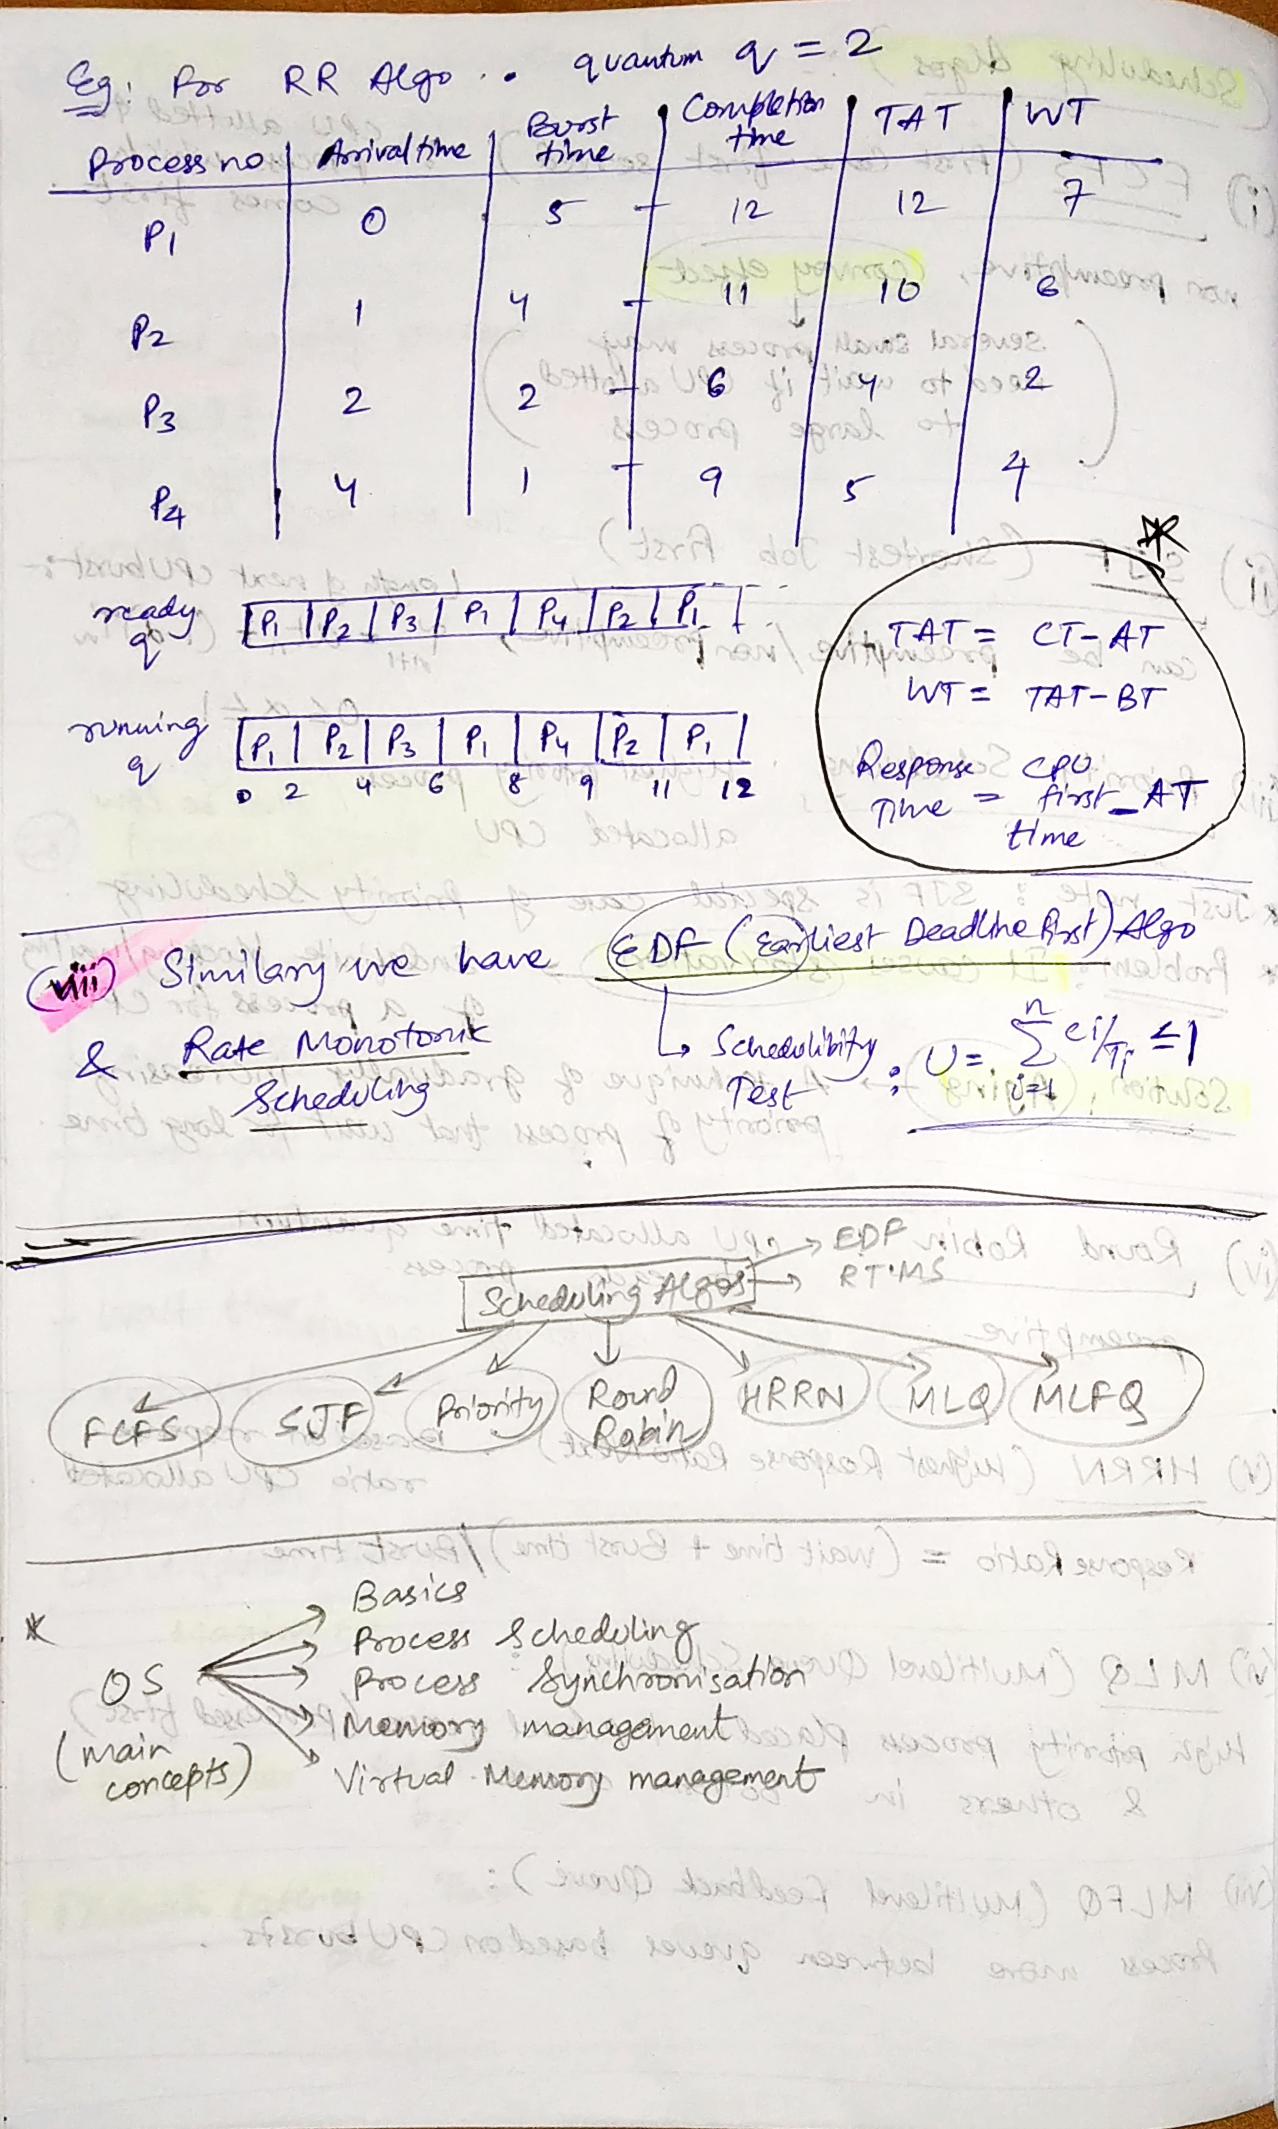 Eg: for RR Algo .. quantum q = 2
Process no | Arrival time | Burst time | Completion time | TAT | WT
P1 0 5 12 12 7
P2 1 4 11 10 6
P3 2 2 6 4 2
P4 4 1 9 5 4
ready q P1 | P2 | P3 | P1 | P4 | P2 | P1
running q P1 | P2 | P3 | P1 | P4 | P2 | P1
0 2 4 6 8 9 11 12
TAT = CT-AT
WT = TAT-BT
Response Time = CPU first time - AT
(viii) Similary we have EDF (Earliest Deadline first) Algo
& Rate Monotonic Scheduling
Schedulibity Test : U = n Σ i=1 ei/Ti ≤ 1
Scheduling Algos
EDF
RTMS
FCFS SJF Priority Round Robin HRRN MLQ MLFQ
* OS (main concepts)
Basics
Process Scheduling
Process Synchronisation
Memory management
Virtual Memory management